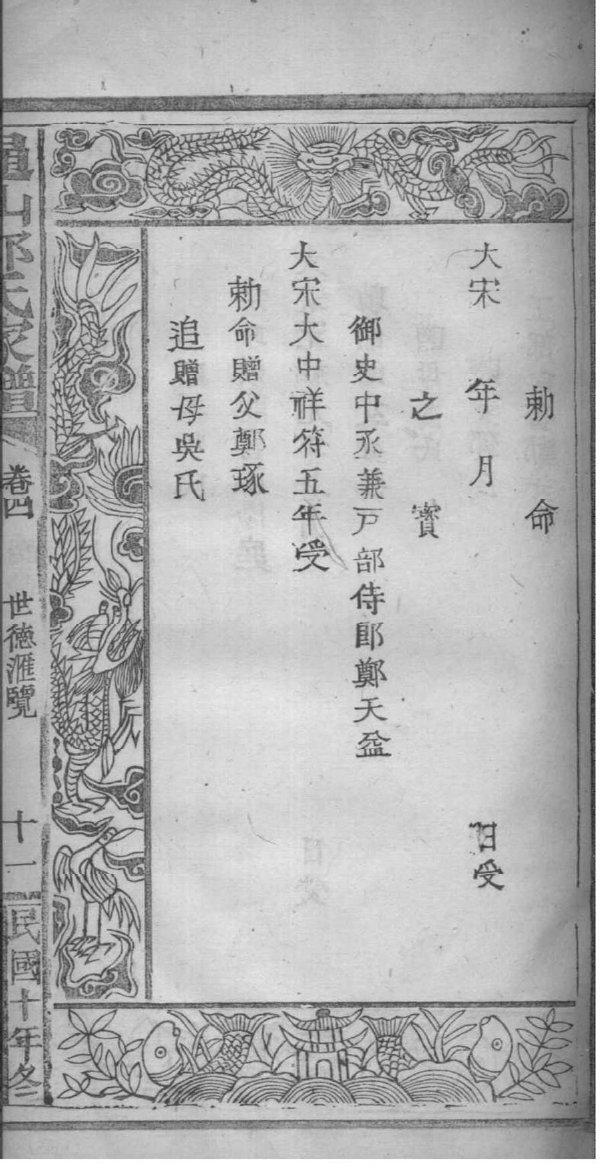 勅命
大宋 年月 日受
之寶
御史中丞兼戸部侍郎鄭天益
大宋大中祥符五年受
勅命贈父鄭琢
追贈母吳氏
山鄭氏家譜
卷四
世德滙覽
十一
民國十年冬